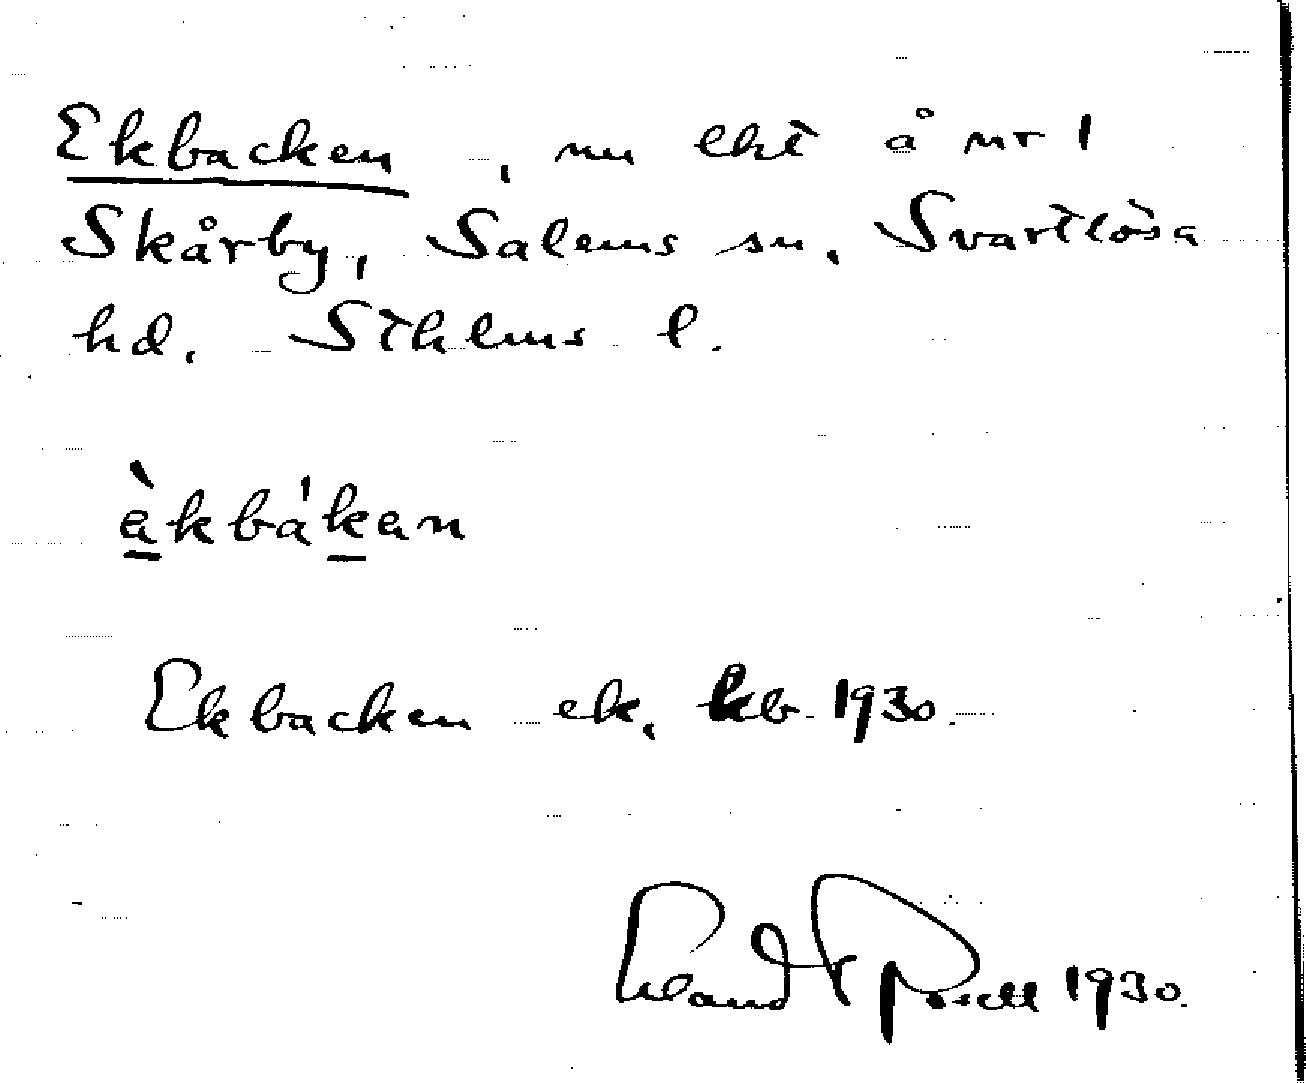 Ekbacken, nu lht å nr 1
Skårby, Salems sn, Svartlösa
hd, Sthlms l.
èkbákan
Ekbacken ek. kb 1930.
1930.